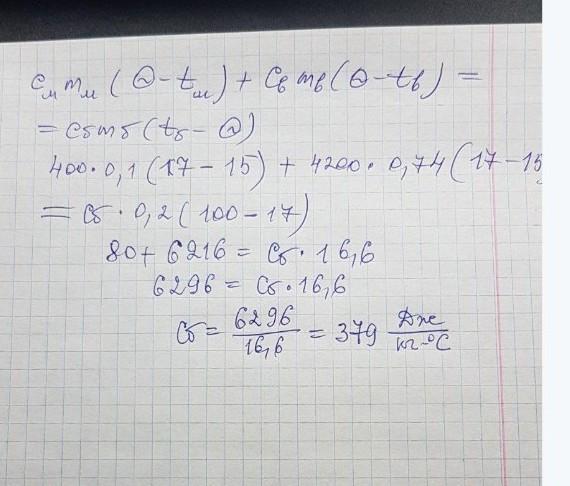 cмmм(Θ-tм)+cвmв(Θ-tв)=
=cбmб(tб-Θ)
400·0,1(17-15)+4200·0,74(17-15
=cб·0,2(100-17)
80+6216=cб·16,6
6296=cб·16,6
cб=6296/16,6=379 Дж/кг·°C